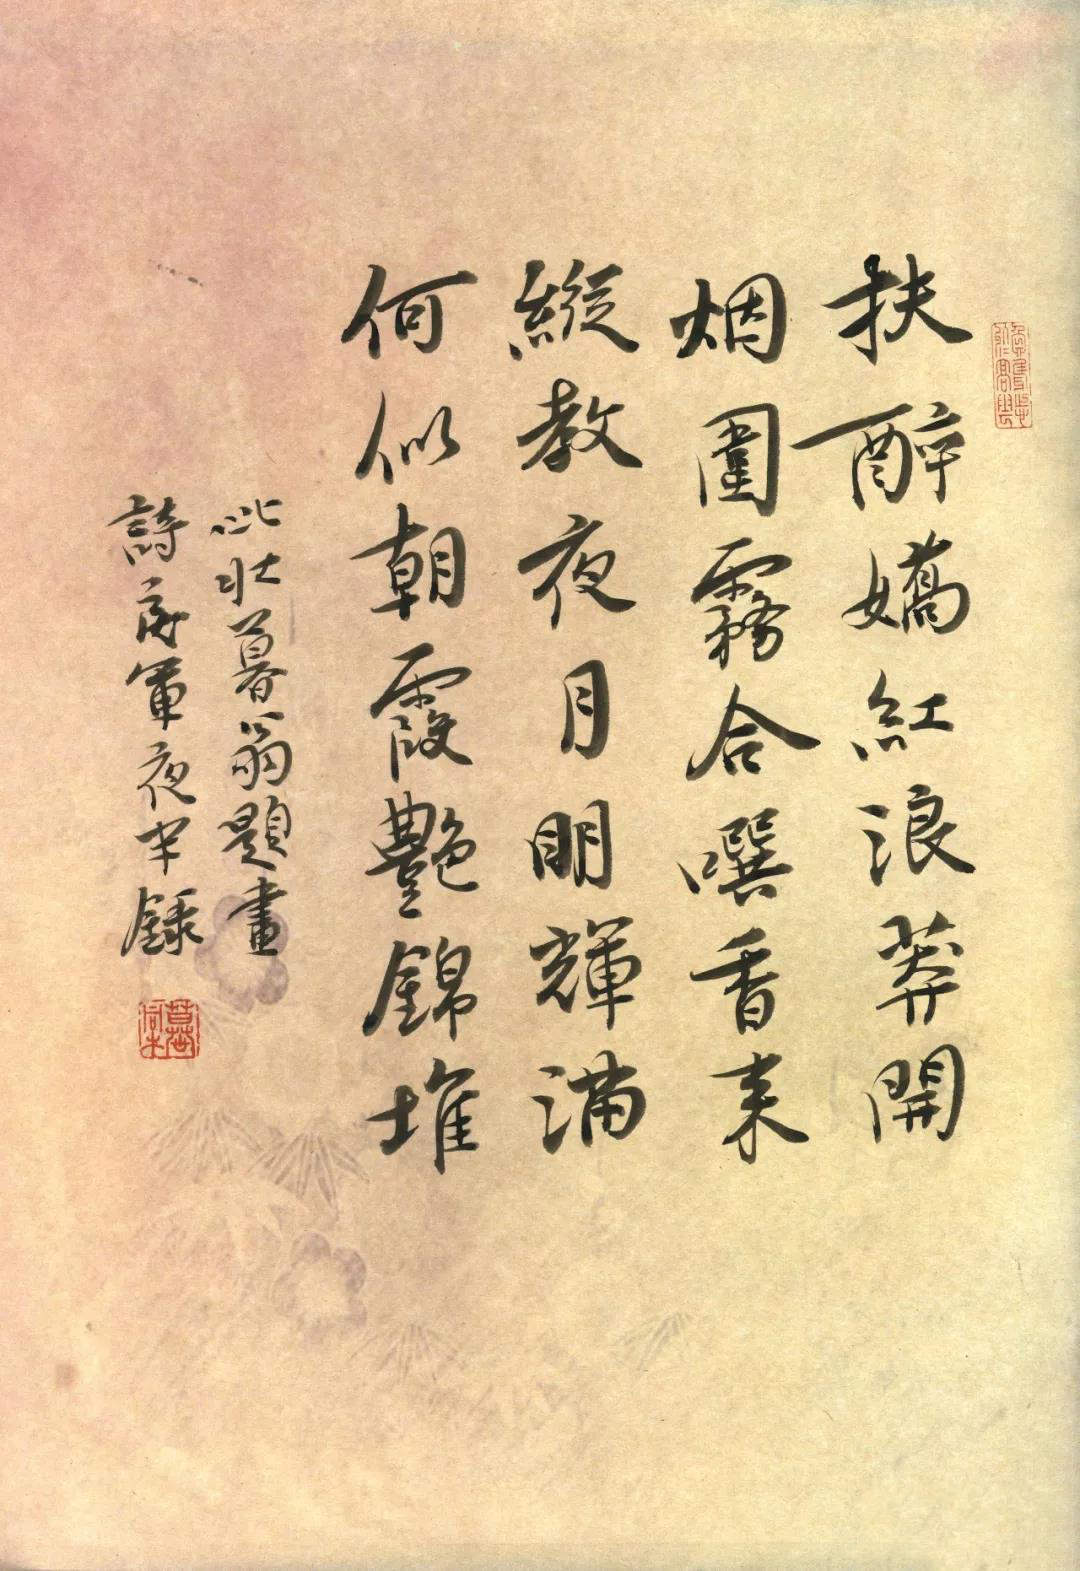 扶醉嬌紅浪莽開
烟圍霧合噀香来
縱教夜月明輝滿
何似朝霞艷錦堆
此壯暮翁題畫
詩軍夜半錄